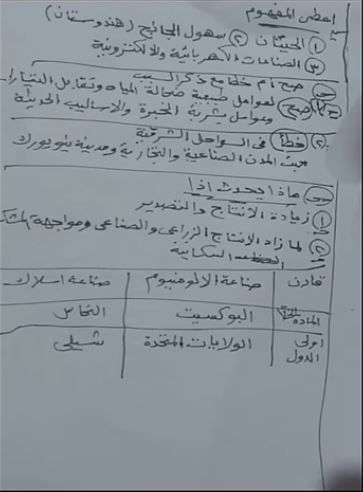 اعطى المفهوم
① الجيتان ② سهول الجانج (هندوستان)
③ الصناعات الكهربائية والالكترونية
صح ام خطأ مع ذكر السبب
① صح لعوامل طبيعية ضحالة المياه وتقابل التيارات
وعوامل بشرية الخبرة والاساليب الحديثة
② خطأ فى السواحل الشرقية
حيث المدن الصناعية والتجارية ومدينة نيويورك
ماذا يحدث اذا
① زيادة الانتاج والتصدير
② لما زاد الانتاج الزراعى والصناعى ومواجهة
السكانية
قارن صناعة الالومنيوم صناعة اسلاك
المادة البوكسيت النحاس
اولى الدول الولايات المتحدة شيلى